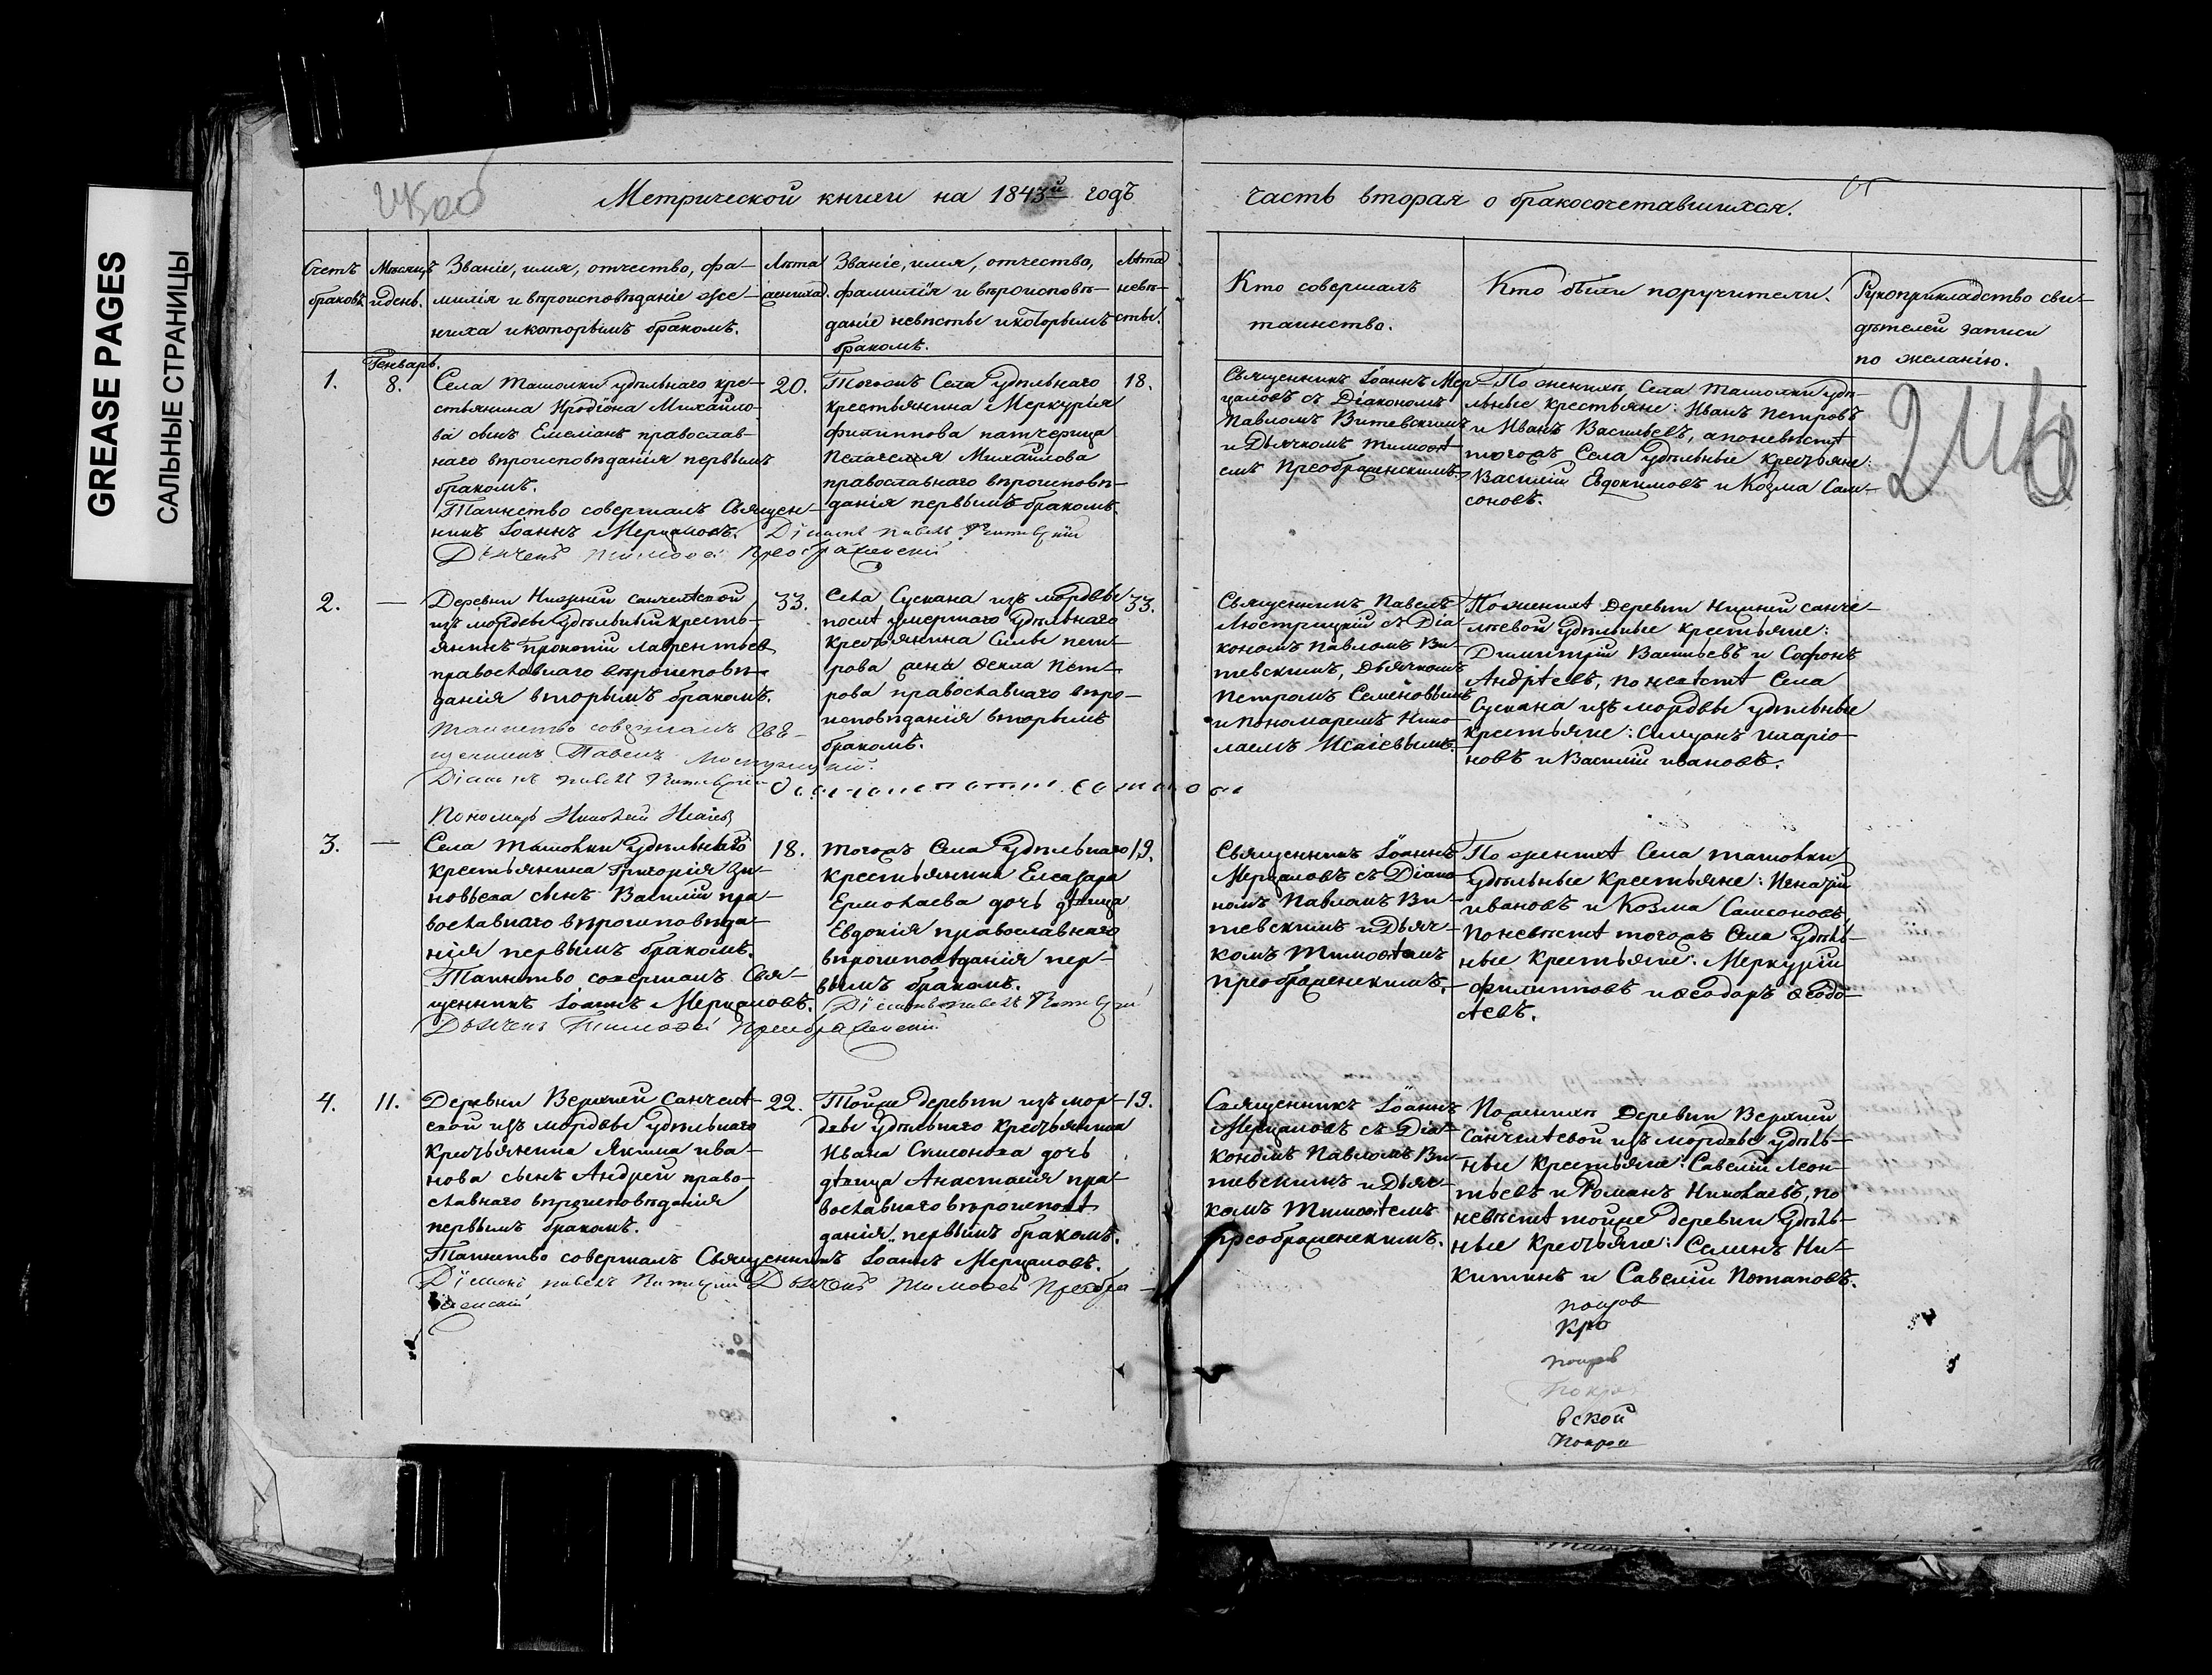 GREASE PAGES
САЛЬНЫЕ СТРАНИЦЫ
Метрической книги на 1843й годъ
часть вторая о бракосочетавшихся.
Счетъ браковъ.
Мѣсяцъ и день.
Званіе, имя, отчество, фа-
милія и вѣроисповѣданіе же-
ниха и которымъ бракомъ.
Лѣта жениха.
Званіе, имя, отчество,
фамилія и вѣроисповѣ-
даніе невѣсты и которымъ
бракомъ.
Лѣта невѣ-
сты.
Кто совершалъ
таинство.
Кто были поручители.
Рукоприкладство сви-
дѣтелей записи
по желанію.
1.
Генварь.
8.
Села Ташолки удѣльнаго кре-
стьянина Иродіона Михайло-
ва сынъ Емеліанъ православ-
наго вѣроисповѣданія первымъ
бракомъ.
Таинство совершалъ Священ-
никъ Іоаннъ Мерцаловъ.
Діаконъ Павелъ Витевскій
Дьячекъ Тимоѳей Преображенскій
20.
Тогожъ Села удѣльнаго
крестьянина Меркурія
Филиппова патчерица
Пелагея Михайлова
православнаго вѣроисповѣ-
данія первымъ бракомъ.
18.
Священникъ Іоаннъ Мер-
цаловъ съ Діакономъ
Павломъ Витевскимъ
и Дьячкомъ Тимоѳе-
емъ Преображенскимъ.
По женихѣ Села Ташолки удѣ-
льные крестьяне: Иванъ Петровъ
и Иванъ Васильевъ, а по невѣстѣ
тогожъ Села удѣльные крестьяне:
Василій Евдокимовъ и Козма Сам-
соновъ.
2.
—
Деревни Нижней Санчелѣевой
изъ мордвы удѣльный кресть-
янинъ Прокопій Лаврентьев
православнаго вѣроисповѣ-
данія вторымъ бракомъ.
Таинство совершалъ Свя-
щенникъ Павелъ Люстрицкій.
Діаконъ Павелъ Витевскій
Пономарь Николай Исаіев
33.
Села Сускана изъ мордвы
послѣ умершаго удѣльнаго
крестьянина Силы Пет-
рова жена Ѳекла Пет-
рова православнаго вѣро-
исповѣданія вторымъ
бракомъ.
33.
Священникъ Павелъ
Люстрицкій съ Діа-
кономъ Павломъ Ви-
тевскимъ, Дьячкомъ
Петромъ Семеновымъ
и Пономаремъ Нико-
лаемъ Исаіевымъ.
По женихѣ Деревни Нижней Санче-
лѣевой удѣльные крестьяне:
Димитрій Васильевъ и Софонъ
Андрѣевъ, по невѣстѣ Села
Сускана изъ мордвы удѣльные
крестьяне: Симеонъ Иларіо-
новъ и Василій Ивановъ.
3.
—
Села Ташолки удѣльнаго
крестьянина Григорія Зи-
новьева сынъ Василій пра-
вославнаго вѣроисповѣда-
нія первымъ бракомъ.
Таинство совершалъ Свя-
щенникъ Іоаннъ Мерцаловъ.
Діаконъ Павелъ Витевскій
Дьячекъ Тимоѳей Преображенскій
18.
Тогожъ Села удѣльнаго
крестьянина Елеазара
Ермолаева дочь дѣвица
Евдокія православнаго
вѣроисповѣданія пер-
вымъ бракомъ.
19.
Священникъ Іоаннъ
Мерцаловъ съ Діако-
номъ Павломъ Ви-
тевскимъ и Дьяч-
комъ Тимоѳеемъ
Преображенскимъ.
По женихѣ Села Ташолки
удѣльные крестьяне: Игнатій
Ивановъ и Козма Самсоновъ,
по невѣстѣ тогожъ Села удѣль-
ные крестьяне: Меркурій
Филипповъ и Ѳеодоръ Ѳеодо-
тевъ.
4.
11.
Деревни Верхней Санчелѣ-
евой изъ мордвы удѣльнаго
крестьянина Якима Ива-
нова сынъ Андрей право-
славнаго вѣроисповѣданія
первымъ бракомъ.
Таинство совершалъ Священникъ Іоаннъ Мерцаловъ.
Діаконъ Павелъ Витевскій Дьячекъ Тимоѳей Преобра-
женскій
22.
Тойже деревни изъ мор-
двы удѣльнаго крестьянина
Ивана Симонова дочь
дѣвица Анастасія пра-
вославнаго вѣроисповѣ-
данія первымъ бракомъ.
19.
Священникъ Іоаннъ
Мерцаловъ съ Діа-
кономъ Павломъ Ви-
тевскимъ и Дьяч-
комъ Тимоѳеемъ
Преображенскимъ.
По женихѣ Деревни Верхней
Санчелѣевой изъ мордвы удѣль-
ные крестьяне: Савелій Леон-
тьевъ и Романъ Николаевъ, по
невѣстѣ тойже деревни удѣль-
ные крестьяне: Семенъ Ни-
китинъ и Савелій Потаповъ.
Кро
вской
Покров